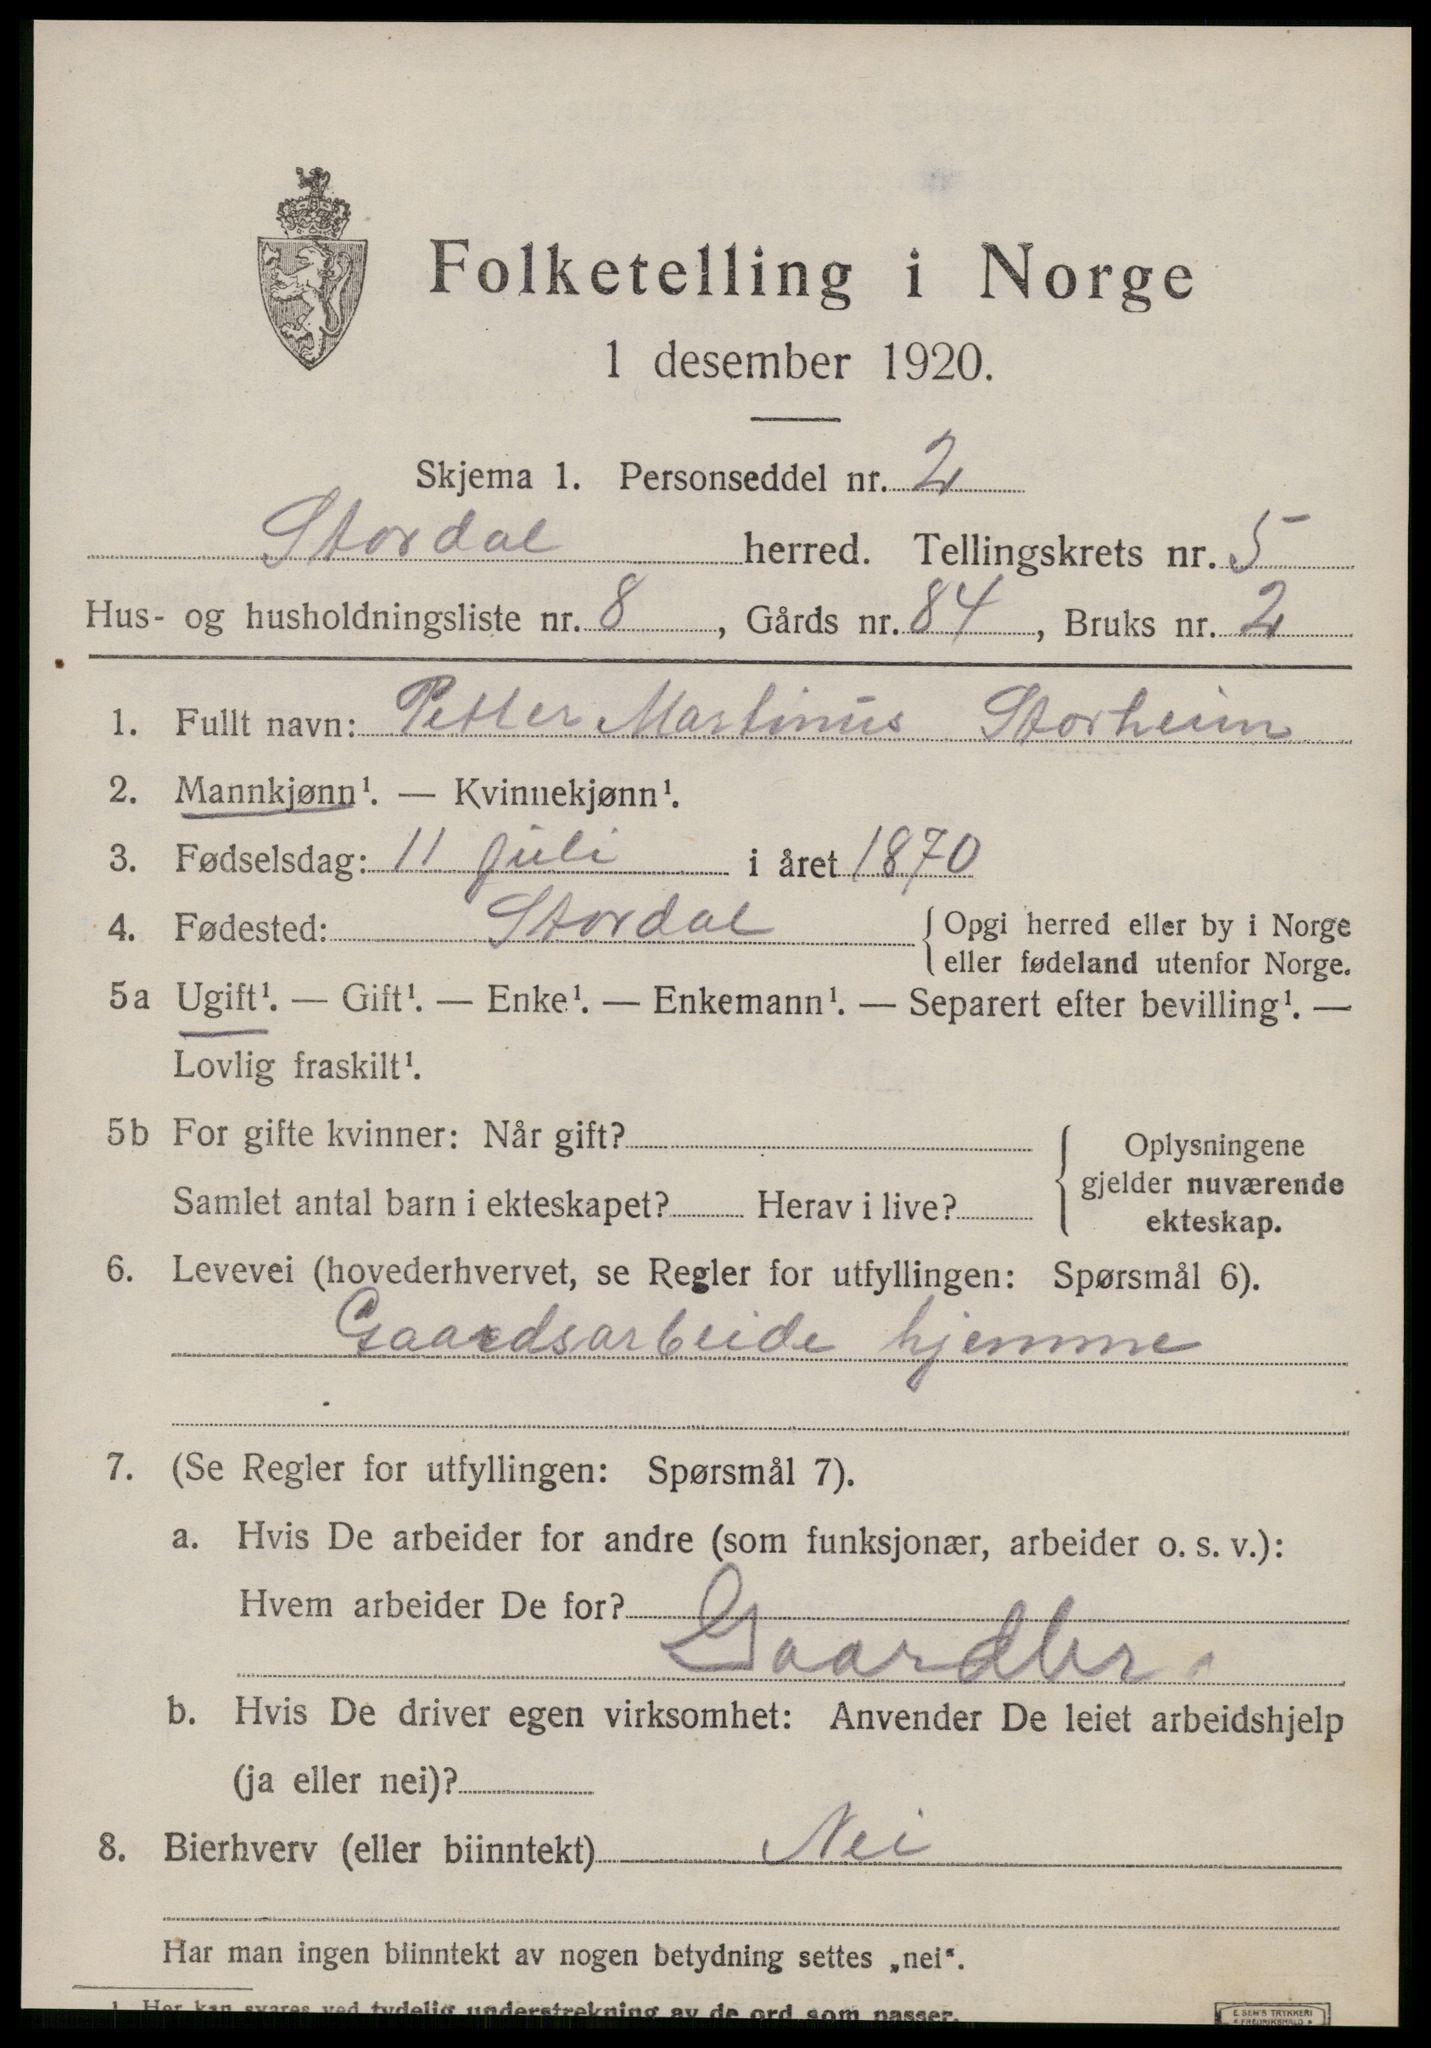 Folketelling i Norge
1 desember 1920.
Skjema 1. Personseddel nr. 2
Stordal herred. Tellingskrets nr. 5
Hus- og husholdningsliste nr. 8, Gårds nr. 84, Bruks nr. 2
1. Fullt navn: Petter Martinus Storheim
2. Mannkjønn¹. — Kvinnekjønn¹.
3. Fødselsdag: 11 juli i året 1870
4. Fødested: Stordal { Opgi herred eller by i Norge
eller fødeland utenfor Norge.
5a Ugift¹. — Gift¹. — Enke¹. — Enkemann¹. — Separert efter bevilling¹. —
Lovlig fraskilt¹.
5b For gifte kvinner: Når gift?
Samlet antal barn i ekteskapet? Herav i live?
{ Oplysningene
gjelder nuværende
ekteskap.
6. Levevei (hovederhvervet, se Regler for utfyllingen: Spørsmål 6).
Gaardsarbeide hjemme
7. (Se Regler for utfyllingen: Spørsmål 7).
a. Hvis De arbeider for andre (som funksjonær, arbeider o. s. v.):
Hvem arbeider De for?
Gaardbr.
b. Hvis De driver egen virksomhet: Anvender De leiet arbeidshjelp
(ja eller nei)?
8. Bierhverv (eller biinntekt) Nei
Har man ingen biinntekt av nogen betydning settes „nei“.
1. Her kan svares ved tydelig understrekning av de ord som passer.
E. SEM'S TRYKKERI
FREDRIKSHALD